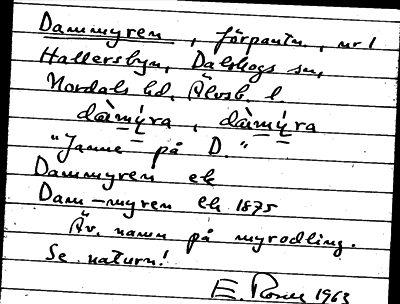 Dammyren, förpantn., nr 1
Hallersbyn, Dalskogs sn,
Nordals hd, Älvsb. l.
dàmýra, dàmýra
"Janne på D."
Dammyren ek
Dam-myren lk 1875
Äv. namn på myrodling.
Se naturn!
E. 1963